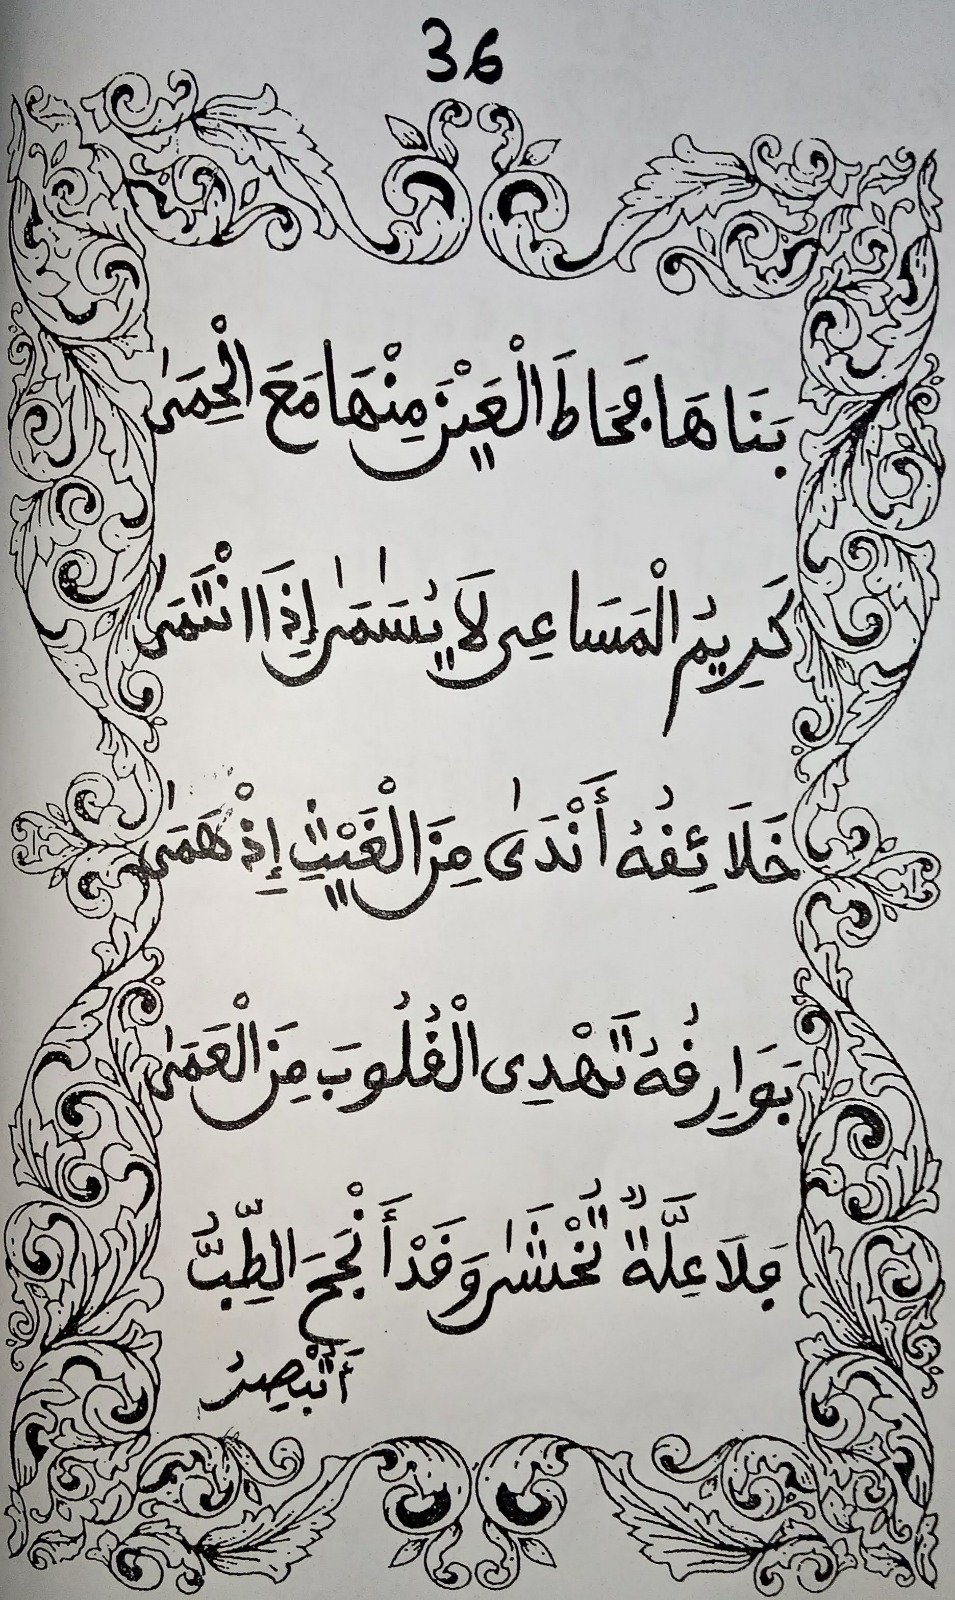 36
بَنَاهَا فَحَاطَ الْعَيْنَ مِنْهَا مَعَ الْحِمَىٰ
كَرِيمُ الْمَسَاعِى لَا يُسَٰمَىٰ إِذَا انْتَمَىٰ
خَلَائِقُهُ أَنْدَىٰ مِنَ الْغَيْثِ إِذْ هَمَىٰ
بَوَارِقُهُ تَهْدِى الْقُلُوبَ مِنَ الْعَمَىٰ
فَلَا عِلَّةٌ تُخْشَىٰ وَقَدْ أَنْجَحَ الطِّبُّ
أَتُبْصِرُ